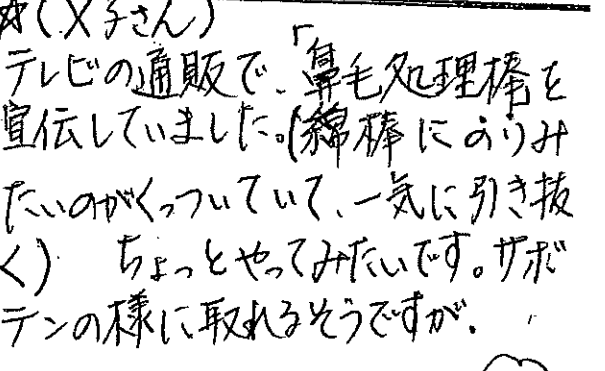 ☆(X子さん)
テレビの通販で、「鼻毛処理棒を
宣伝していました。(綿棒にのりみ
たいのがくっついていて、一気に引き抜
く) ちょっとやってみたいです。サボ
テンの様に取れるそうですが.